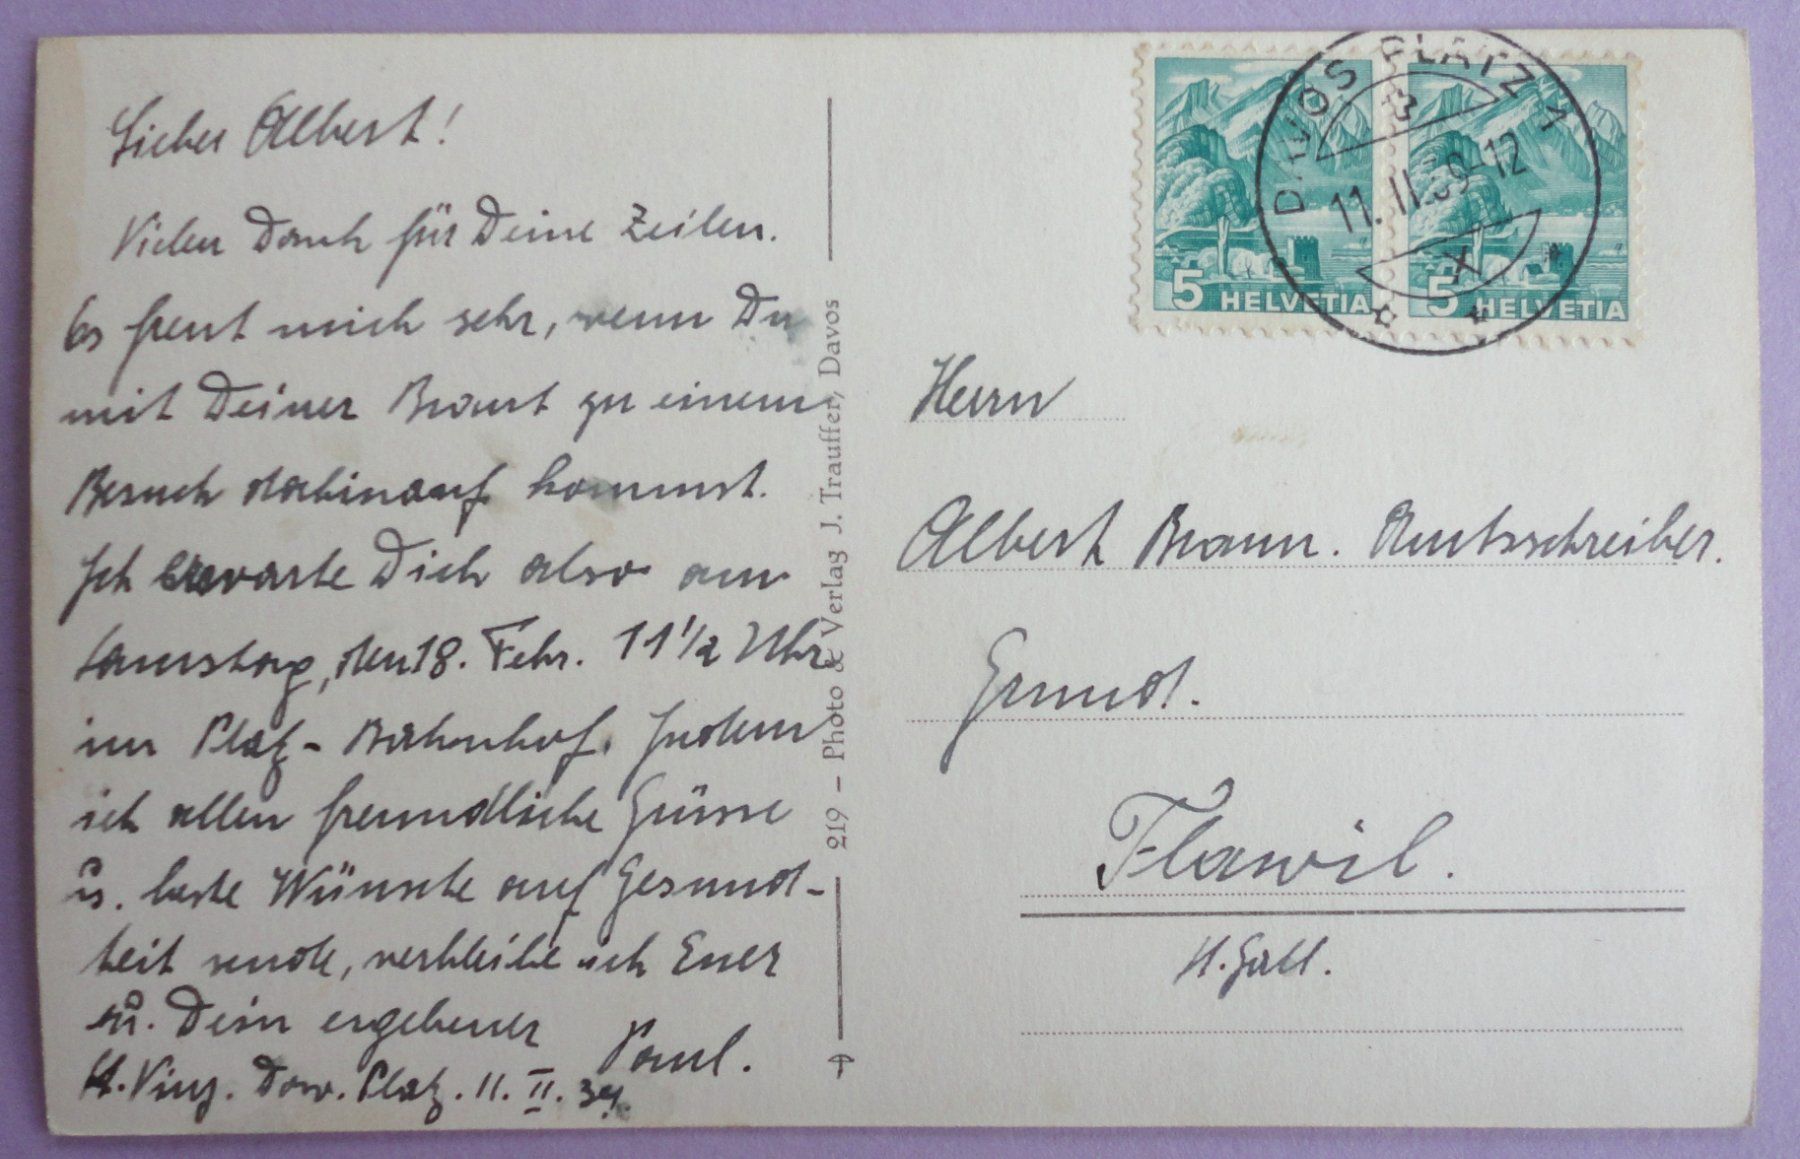 Lieber Albert!
Vielen Dank für Deine Zeilen.
Es freut mich sehr, wenn Du
mit Deiner Braut zu einem
Besuch dahinauf kommst.
Ich erwarte Dich also am
Samstag, den 18. Febr. 11 1/2 Uhr
im Platz-Bahnhof. Indem
ich allen freundliche Grüsse
u. beste Wünsche auf Gesund-
heit sende, verbleibe ich Euer
u. Dein ergebener
Paul.
St. Vinz. Dav. Platz. 11. II. 39.
219 – Photo & Verlag J. Trauffer, Davos
DAVOS PLATZ 1
11. II. 39-12
X
5 HELVETIA
5 HELVETIA
Herrn
Albert Braun. Amtsschreiber.
Grund.
Flawil.
St. Gall.